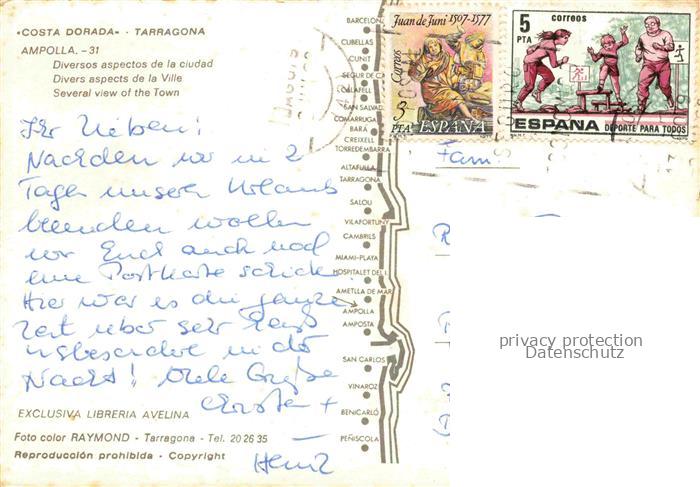 «COSTA DORADA» - TARRAGONA
AMPOLLA. - 31
Diversos aspectos de la ciudad
Divers aspects de la Ville
Several view of the Town
Ihr Lieben!
Nachdem wir in 2
Tagen unseren Urlaub
beenden wollen
wir Euch auch noch
eine Postkarte schicken.
Hier war es die ganze
Zeit über sehr heiß
insbesondere in der
Nacht! Viele Grüße
+
Heinz
EXCLUSIVA LIBRERIA AVELINA
Foto color RAYMOND - Tarragona - Tel. 20 26 35
Reproducción prohibida - Copyright
BARCELONA
CUBELLAS
CUNIT
SEGUR DE CA
CALAFELL
SAN SALVAD
COMARRUGA
BARÁ
CREIXELL
TORREDEMBARRA
ALTAFULLA
TARRAGONA
SALOU
VILAFORTUNY
CAMBRILS
MIAMI-PLAYA
HOSPITALET DEL I.
AMETLLA DE MAR
AMPOLLA
AMPOSTA
SAN CARLOS
VINAROZ
BENICARLÓ
PEÑISCOLA
Juan de Juni 1507-1577
Correos
3
PTA ESPAÑA
5
PTA
correos
ESPAÑA DEPORTE PARA TODOS
Fam
privacy protection
Datenschutz